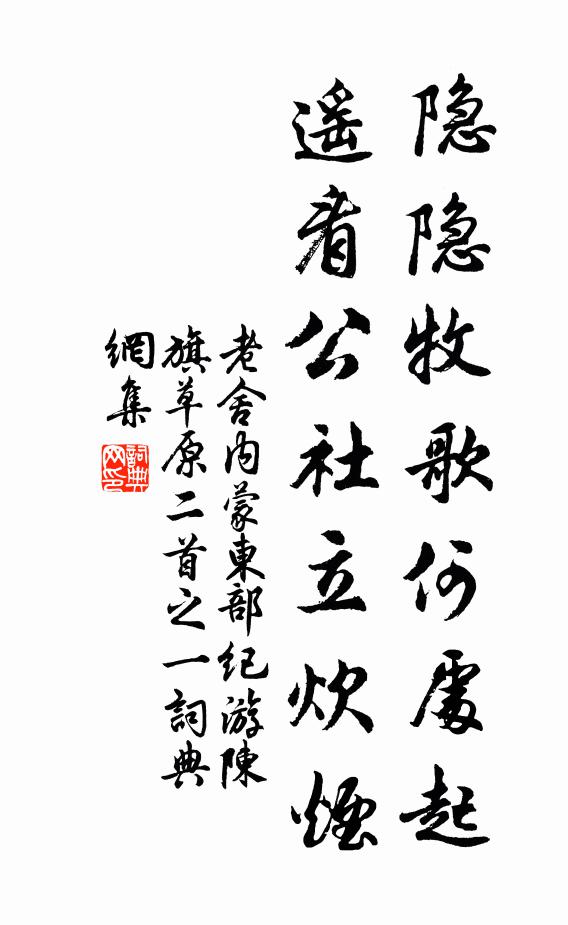 隐隐牧歌何處起
遥看公社立炊煙
老舍内蒙東部纪游陳
旗草原二首之一詞典
網集
詞典网印